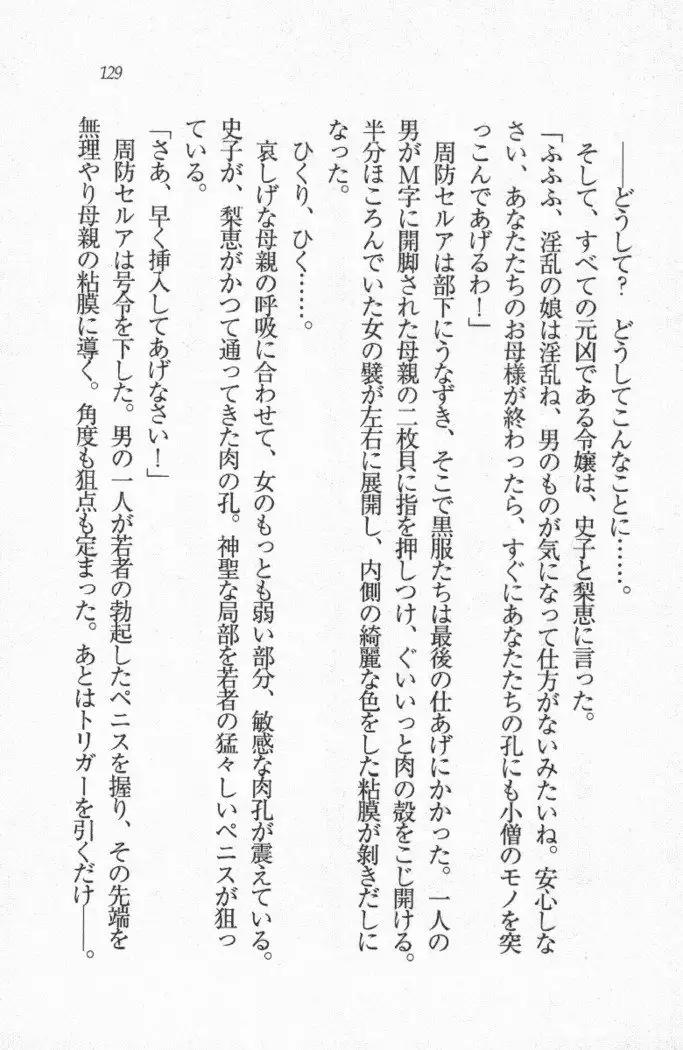 129
――どうして？　どうしてこんなことに……。
そして、すべての元凶である令嬢は、史子と梨恵に言った。
「ふふふ、淫乱の娘は淫乱ね、男のものが気になって仕方がないみたいね。安心しな
さい、あなたたちのお母様が終わったら、すぐにあなたたちの孔にも小僧のモノを突
っこんであげるわ！」
周防セルアは部下にうなずき、そこで黒服たちは最後の仕あげにかかった。一人の
男がＭ字に開脚された母親の二枚貝に指を押しつけ、ぐいいっと肉の殻をこじ開ける。
半分ほころんでいた女の襞が左右に展開し、内側の綺麗な色をした粘膜が剝きだしに
なった。
ひくり、ひく……。
哀しげな母親の呼吸に合わせて、女のもっとも弱い部分、敏感な肉孔が震えている。
史子が、梨恵がかつて通ってきた肉の孔。神聖な局部を若者の猛々しいペニスが狙っ
ている。
「さあ、早く挿入してあげなさい！」
周防セルアは号令を下した。男の一人が若者の勃起したペニスを握り、その先端を
無理やり母親の粘膜に導く。角度も狙点も定まった。あとはトリガーを引くだけ――。